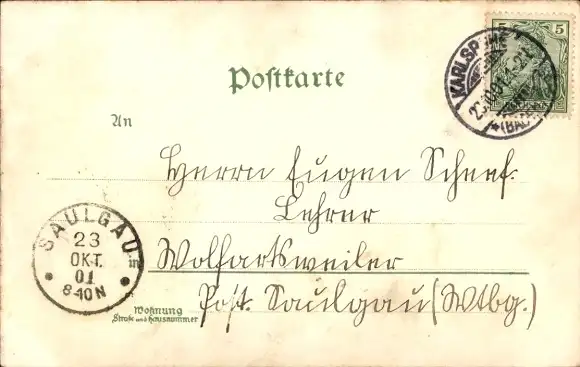 5 5
KARLSRUHE
(BAD
Postkarte
An
Herrn Eugen Scheef.
Lehrer
in Wolfartsweiler
Post. Saulgau (Wtbg.)
Wohnung
Straße und Hausnummer
SAULGAU
23
OKT.
01
8-10N